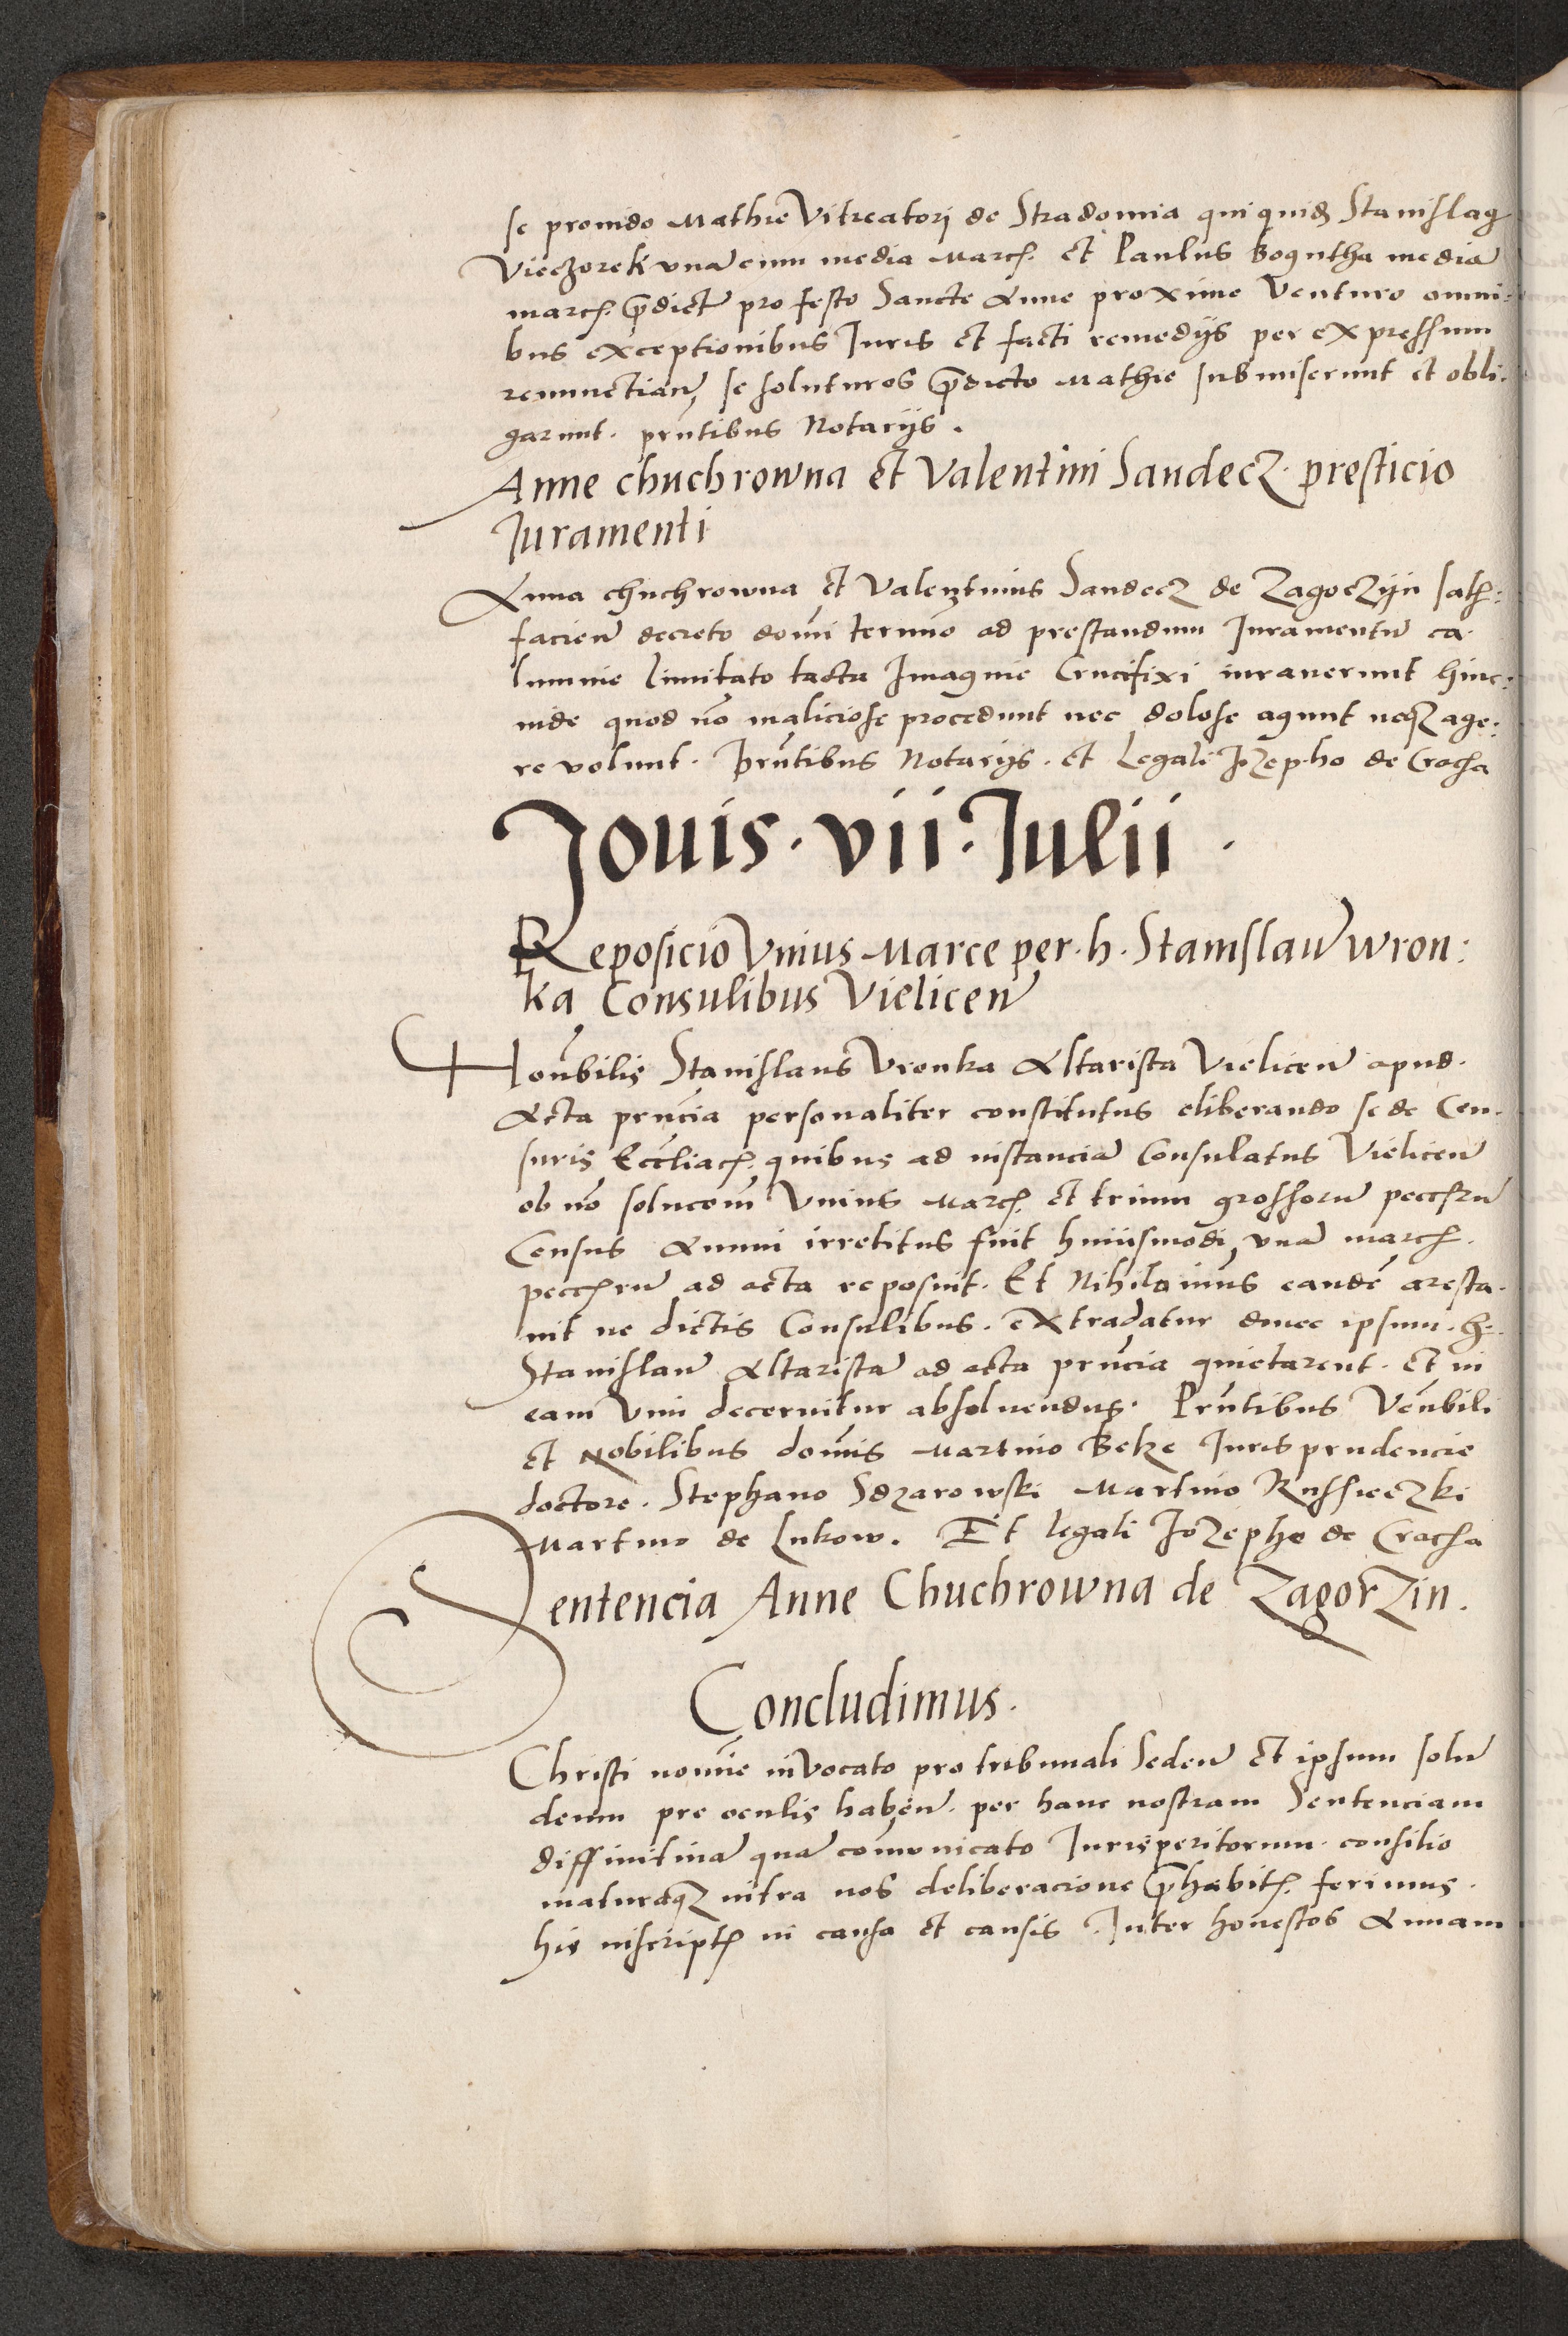 se prouido Mathie Vitreatori de Stradomia qui quid Stanislaus
Vieczorek vnā cum media March. et Paulus Boguthā mediā
march. p̄dictā pro festo Sancte Anne proxime Venturo omni:
bus exceptionibus Iuris et facti remedijs per expressum
renunctian̄, se soluturos p̄dicto Mathie submiserunt et obli.
garunt. pn̄tibus Notarijs.
Anne chuchrowna et Valentini Sandecz. presticio
Iuramenti
Anna chuchrowna et Valentinus Sandecz de Zagoczijn satis:
facien̄ decreto domī termino ad prestandum Iuramentū ca.
lumnie limitato tacta Imagine Crucifixi iurauerunt hinc:
inde quod nō maliciose procedunt nec dolose agunt neq3 age:
re volunt. Prn̄tibus Notarijs. et Legali Jozepho de Cracha
Jouis. vii. Julii.
Reposicio Vnius Marce per. h. Stanislaū wron:
ka Consulibus Vielicen̄
Honr̄bilis Stanislaus Vronka Altarista Vielicen̄ apud.
Acta prn̄cia personaliter constitutus eliberando se de Cen.
suris Eccl̄iach. quibus ad instanciā Consulatus Vielicen̄
ob nō solucom̄ Vnius March. et trium grossorū pecc̄hrū
Census Annui irretitus fuit huiusmodi, vnā march.
pecc̄hrū ad acta reposuit. Et Nihilominus eandē aresta.
uit ne dictis Consulibus. extradatur donec ipsum. h.
Stanislaū Altaristā ad acta prn̄cia quietarent. et in
eam Vim decernitur absoluendus. Prn̄tibus Ven̄bili
et Nobilibus domīs Martino Beke Iuris prudencie
doctore. Stephano Sdzarowski Martino Russieczki
Martino de Lukow. Et legali Jozepho de Cracha
Sentencia Anne Chuchrowna de Zagorzin.
Concludimus.
Christi nomīe inVocato pro tribunali Seden̄ et ipsum solū
deum pre oculis haben̄. per hanc nostram Sentenciam
diffinitiuā quā comūnicato Iurisperitorum. consilio
maturaq3 intra nos deliberacione p̄habitā. ferimus.
his inscriptis in causa et causis. Inter honestos Annam